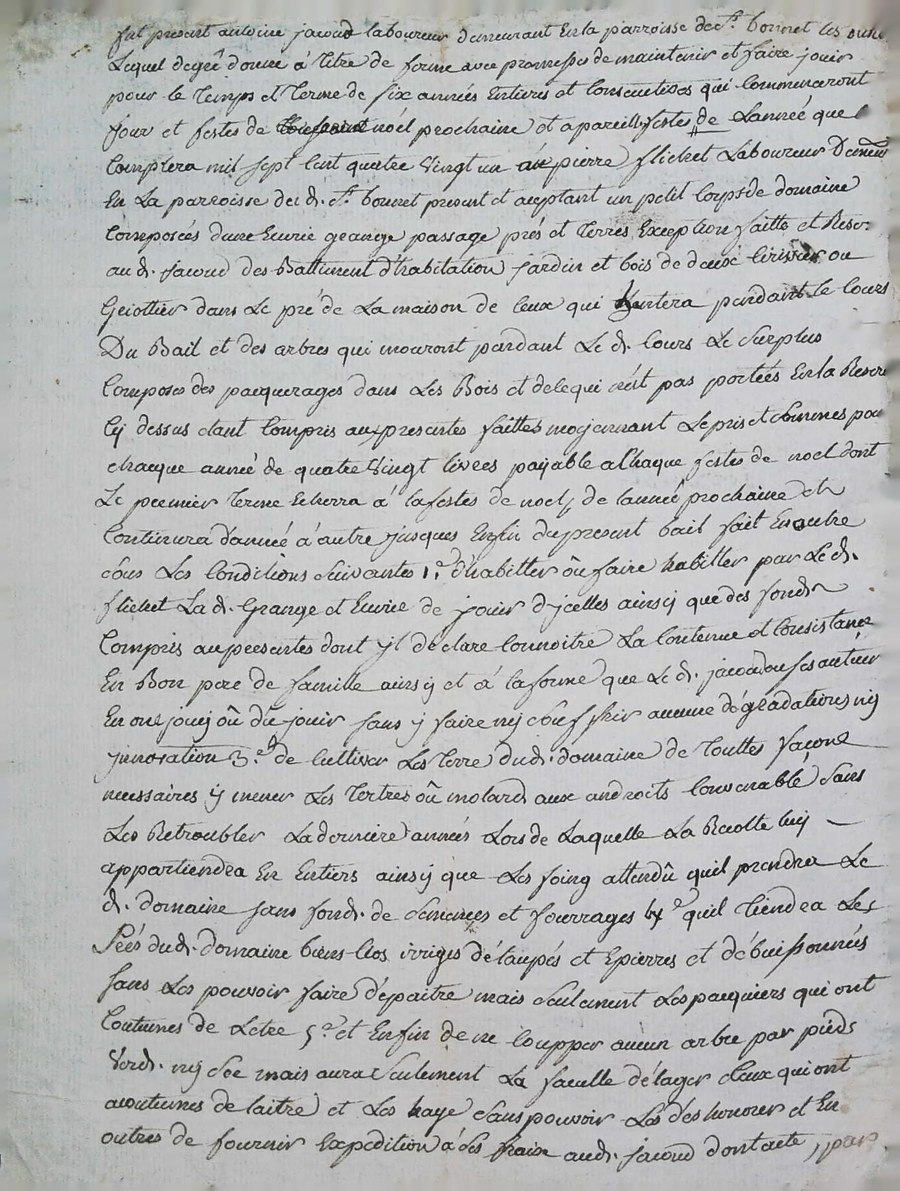 fut present antoine jacoud laboureur demeurant En la parroisse de st. bonnet les
Lequel de gré donne à titre de ferme avec promesses de maintenir et faire jouir
pour le temps et terme de six années Entieres et consecutives qui commenceront
jour et festes de noël prochaine et a pareille festes de Lannée que l
comptera mil sept cent quatre vingt un à pierre flichet Laboureur
En La parroisse du d. st. bonnet present et acceptant un petit corps de domaine
composées dune Ecurie grange passage prés et terres Exception faitte et Reser.
au d. jacoud des Battiment d'habitation jardin et bois de deux cirisier ou
Griottier dans Le pré de La maison de ceux qui pendant le cours
Du Bail et des arbres qui mouront pandant Le d. cours Le surplus
composes des pacquerages dans Les Bois et de ce qui n'est pas portées En la Reserve
cy dessus etant compris aux presentes faittes moyennant Le pris et sommes pour
chacque année de quatre vingt livres payable a Chaque festes de noel dont
Le premier terme Echerra à la festes de noel de lannée prochaine et
continura d'année à autre jusques Enfin du present bail fait En outre
sous Les conditions suivantes 1.° d'habitter où faire habitter par Le d.
flichet La d. Grange et Ecurie de jouir d'ycelles ainsy que des fonds
compris au presentes dont yl déclare connoitre La contenue et consistance
En Bon pere de famille ainsy et à la forme que Le d. jacoud ou ses auteur
En ont jouy où dû jouir sans y faire ny souffrir aucune dégradations ny
jnnovation 3.e de cultiver Les Terre dud. domaine de touttes façons
necessaires y mener Les tertres où molard aux androits convenable sans
Les Retroubler La derniere années Lors de Laquelle La Recolte luy
appartiendra En Entiers ainsy que Les foing attendû quil prendra Le
d. domaine sans fond. de semances et fourrages 4.e quil tiendra Les
Prés dud. domaine biens clos irrigés détaupés et Epierres et débuissonnés
sans Les pouvoir faire dépaitre mais seulement Les pacquiers qui ont
coutumes de Letre 5.° et Enfin de ne coupper aucun arbre par pieds
verd. ny sec mais aura seulement La faculté délager Ceux qui ont
acoutumes de laitre et Les haye sans pouvoir Les des honorer et En
outres de fournir Expedition à ses fraix aud. jacoud dont acte, par